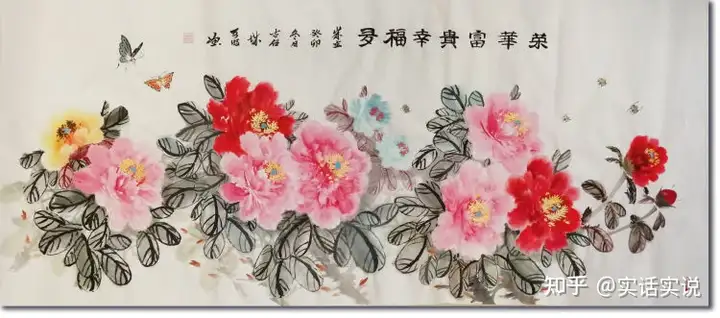 荣華富貴幸福多
癸卯
冬月
知乎 @实话实说